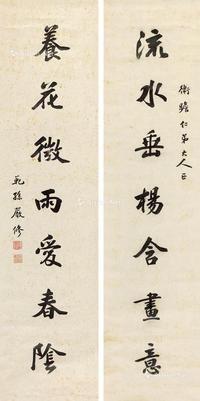 流水垂楊含畫意
衡瞻仁弟大人正
養花微雨愛春陰
範孫嚴修